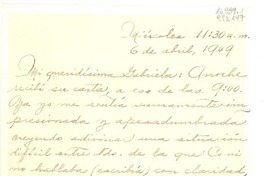 Miércoles 11:30 a.m.
6 de abril, 1949
Mi queridísima Gabriela: Anoche
recibí su carta, a eso de las 9:00.
Ya yo me sentía sumamente im-
presionada y apesadumbrada
creyendo adivinar una situación
difícil entre Uds. de la que Coni
no hablaba (escribía) con claridad,